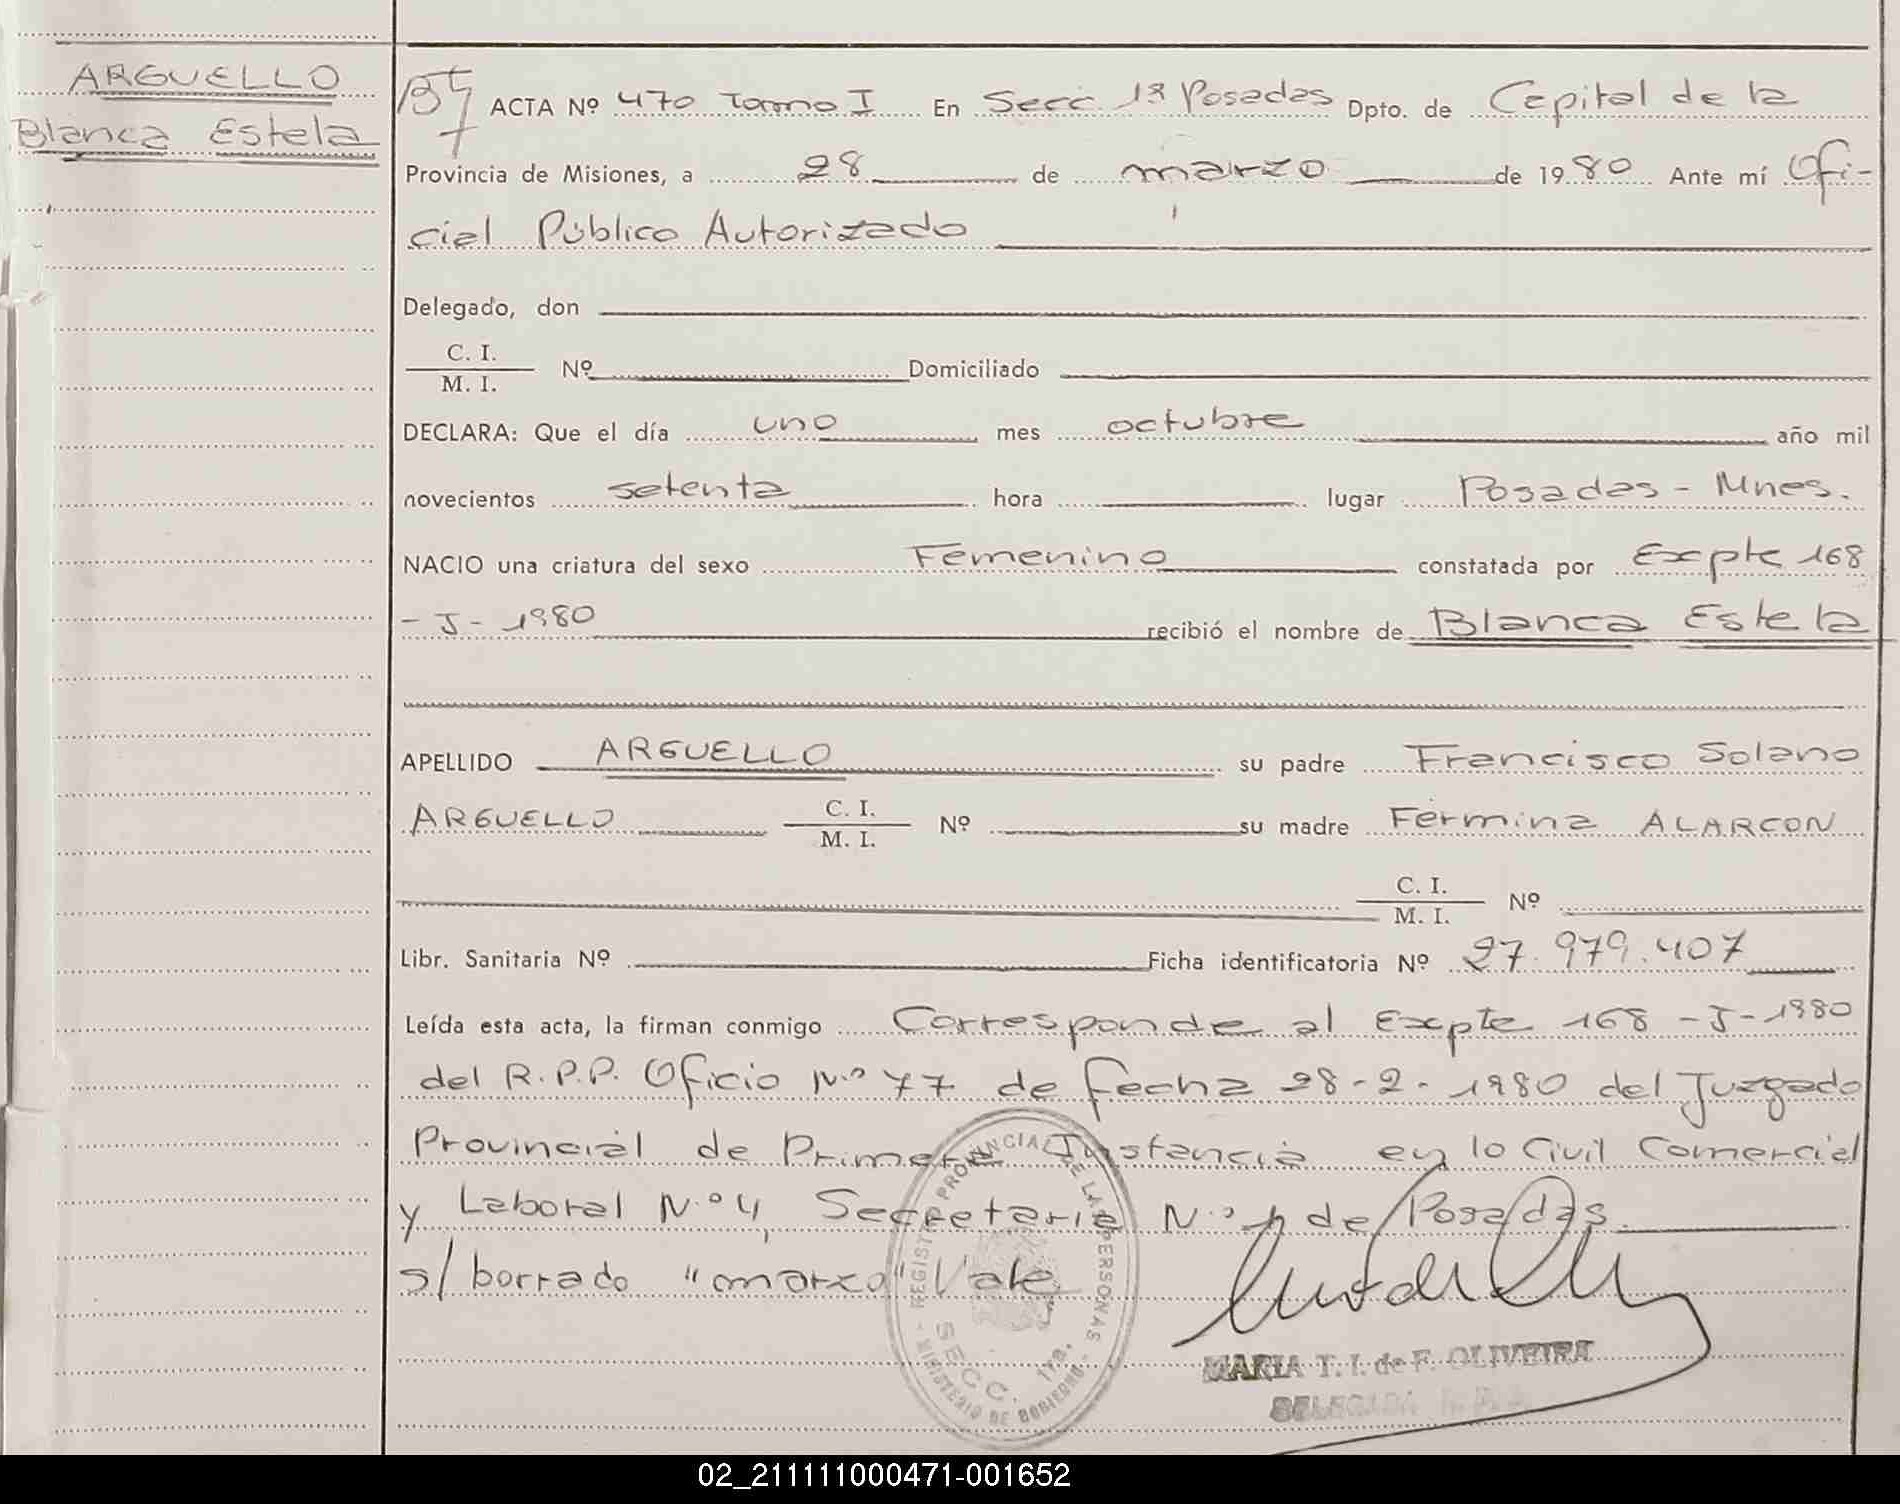 ARGUELLO
Blanca Estela
ACTA Nº 470 Tomo I En Secc. 1ª Posadas Dpto. de Capital de la
Provincia de Misiones, a 28 de marzo de 1980 Ante mí Ofi-
cial Público Autorizado
Delegado, don
C. I.
M. I. Nº Domiciliado
DECLARA: Que el día uno mes octubre año mil
novecientos setenta hora lugar Posadas - Mnes.
NACIO una criatura del sexo Femenino constatada por Expte 168
- J - 1980 recibió el nombre de Blanca Estela
APELLIDO ARGUELLO su padre Francisco Solano
ARGUELLO C. I. M. I. Nº su madre Fermina ALARCON
C. I. M. I. Nº
Libr. Sanitaria Nº Ficha identificatoria Nº 27.979.407
Leída esta acta, la firman conmigo Corresponde al Expte 168 - J - 1980
del R.P.P. Oficio Nº 77 de fecha 28-2-1980 del Juzgado
Provincial de Primera Instancia en lo Civil Comercial
y Laboral Nº 4, Secretaria Nº 1 de Posadas.
s/ borrado "marzo" Vale
REGISTRO PROVINCIAL DE LAS PERSONAS
SECC. 1ra.
MINISTERIO DE GOBIERNO
MARIA T. I. de F. OLIVEIRA
DELEGADA
02_211111000471-001652